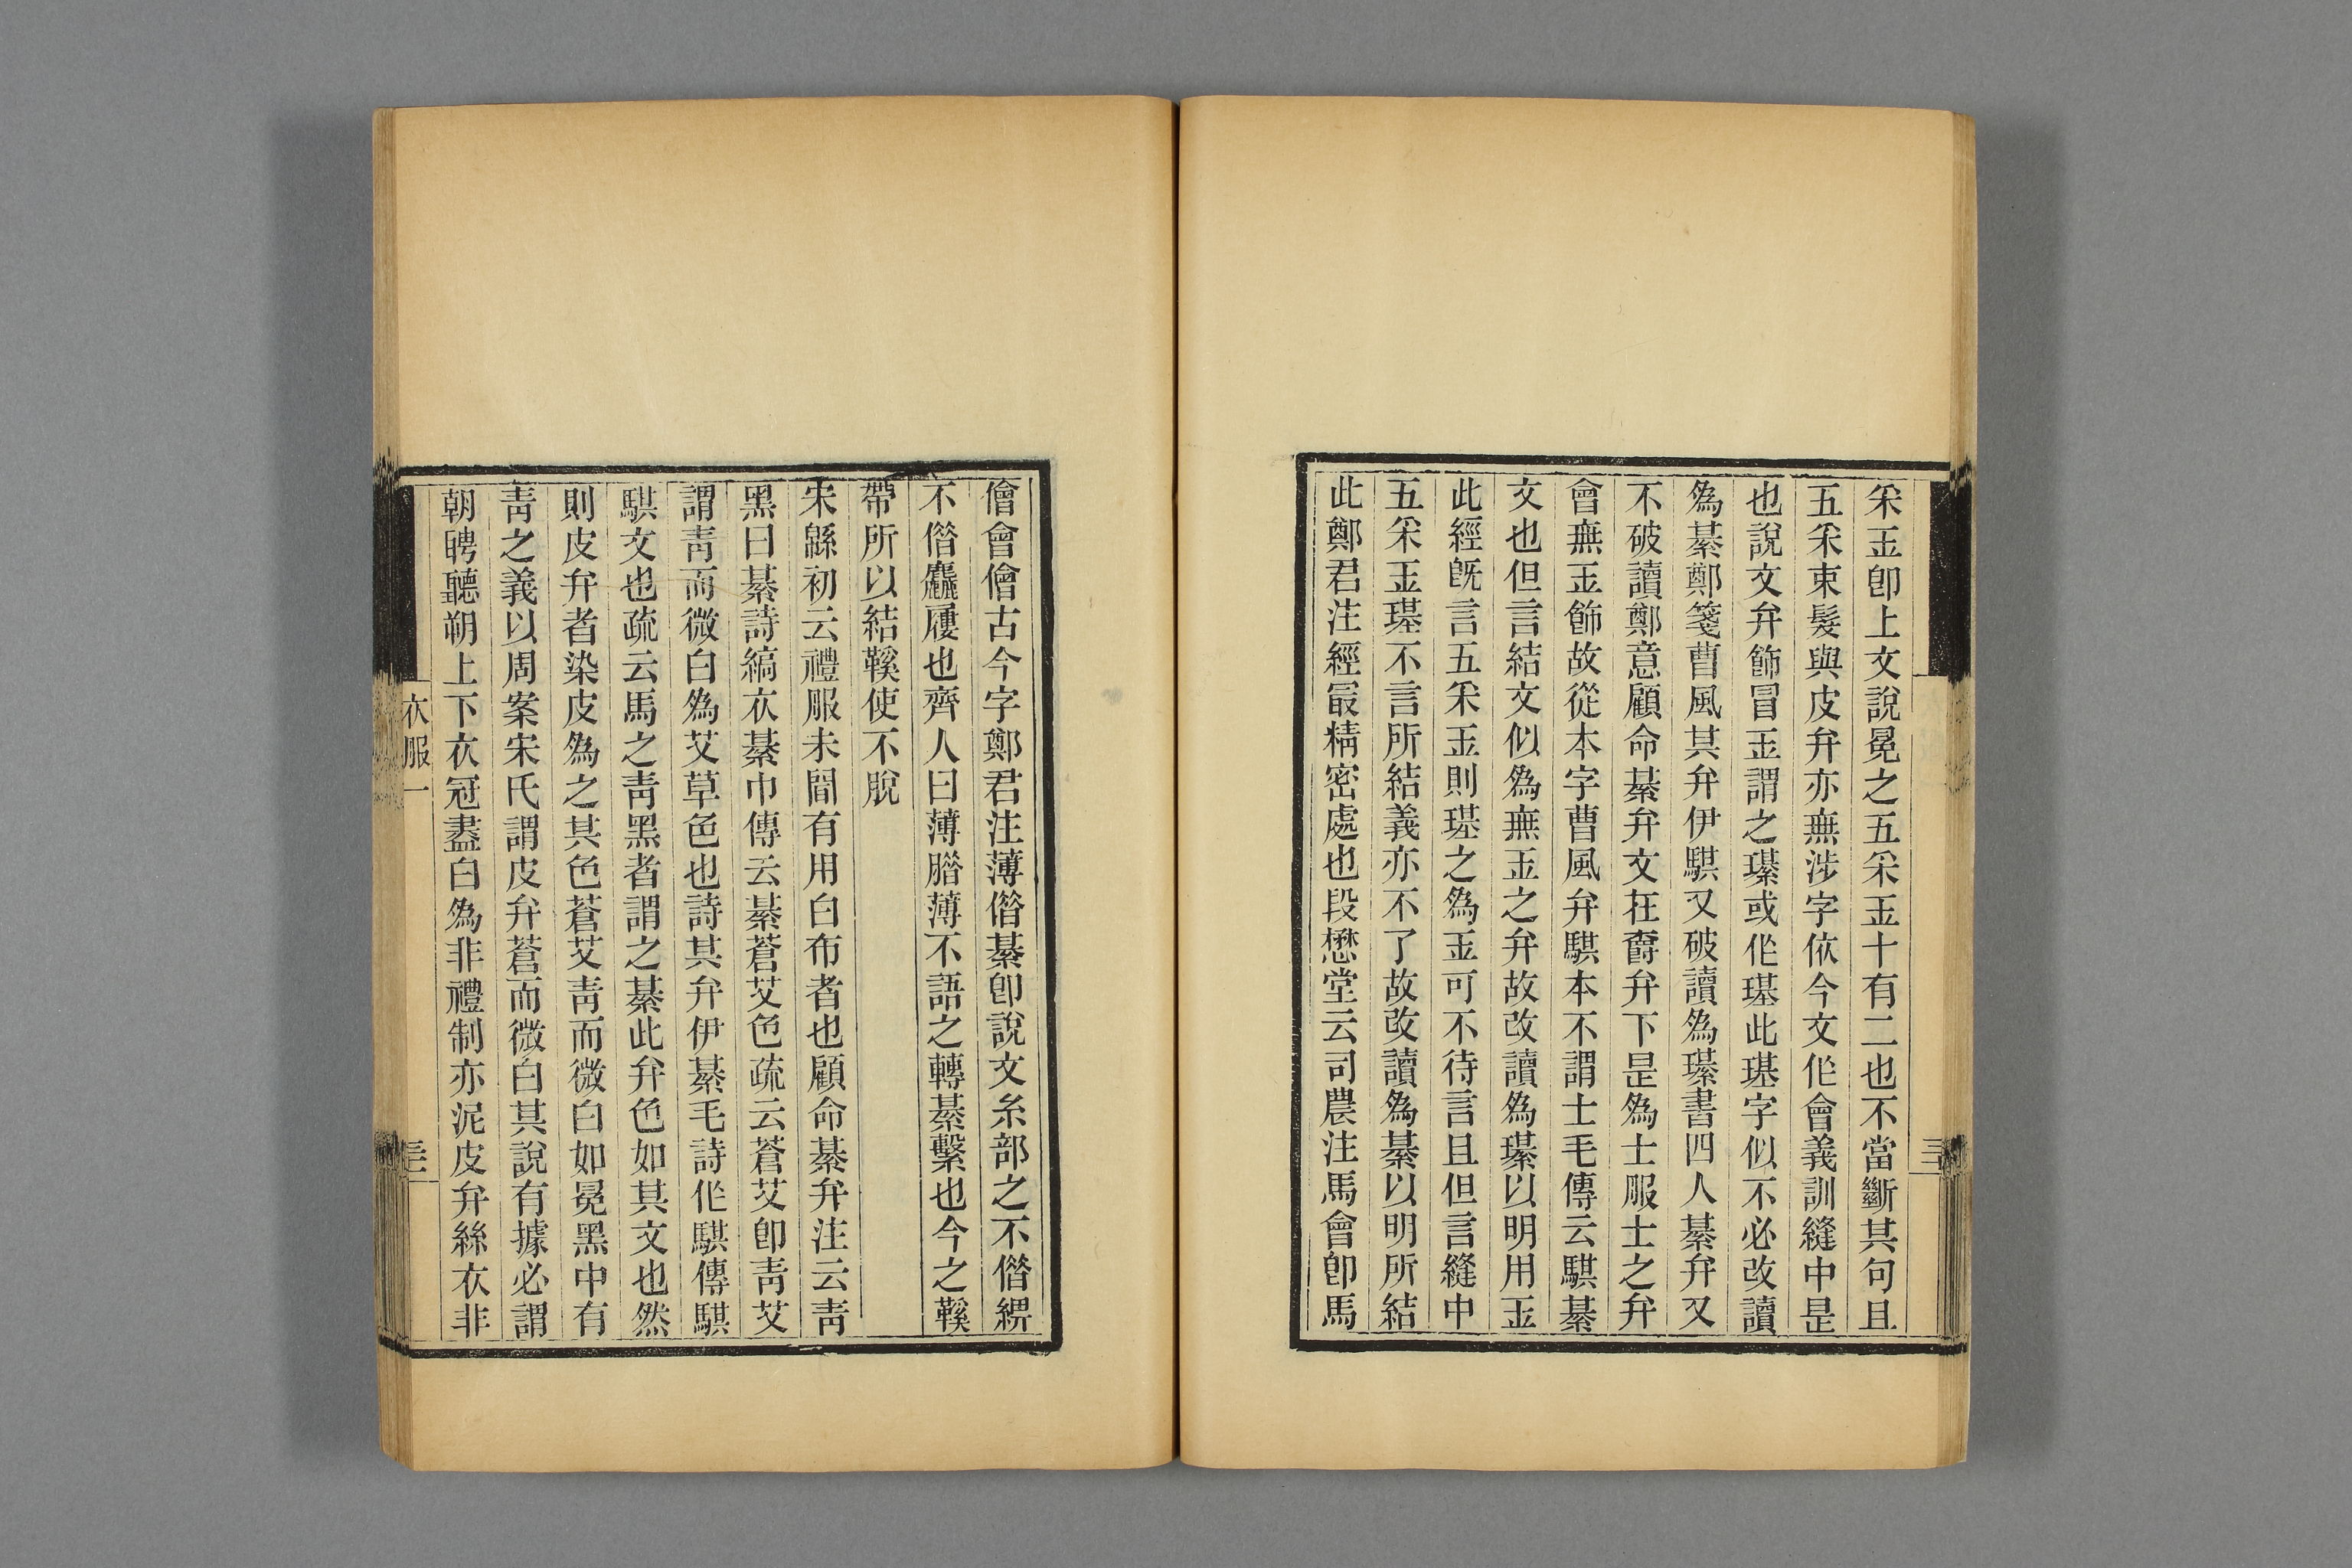 采玉卽上文說冕之五采玉十有二也不當斷其句且
五采束髮與皮弁亦無涉字依今文作會義訓縫中是
也說文弁飾冒玉謂之璂或作璂此璂字似不必改讀
爲綦鄭箋曹風其弁伊騏又破讀爲璂書四人綦弁又
不破讀鄭意顧命綦弁文在爵弁下是爲士服士之弁
會無玉飾故從本字曹風弁騏本不謂士毛傳云騏綦
文也但言結文似爲無玉之弁故改讀爲璂以明用玉
此經旣言五采玉則璂之爲玉可不待言且但言縫中
五采玉璂不言所結義亦不了故改讀爲綦以明所結
此鄭君注經冣精密處也段懋堂云司農注馬會卽馬
儈會儈古今字鄭君注薄偕綦卽說文糸部之不偕綥
不偕麤屨也齊人曰薄腊薄不語之轉綦繫也今之鞵
帶所以結鞵使不脫
宋緜初云禮服未聞有用白布者也顧命綦弁注云靑
黑曰綦詩縞衣綦巾傳云綦蒼艾色疏云蒼艾卽靑艾
謂靑而微白爲艾草色也詩其弁伊綦毛詩作騏傳騏
騏文也疏云馬之靑黑者謂之綦此弁色如其文也然
則皮弁者染皮爲之其色蒼艾靑而微白如冕黑中有
靑之義以周案宋氏謂皮弁蒼而微白其說有據必謂
朝聘聽朔上下衣冠盡白爲非禮制亦泥皮弁絲衣非
衣服一